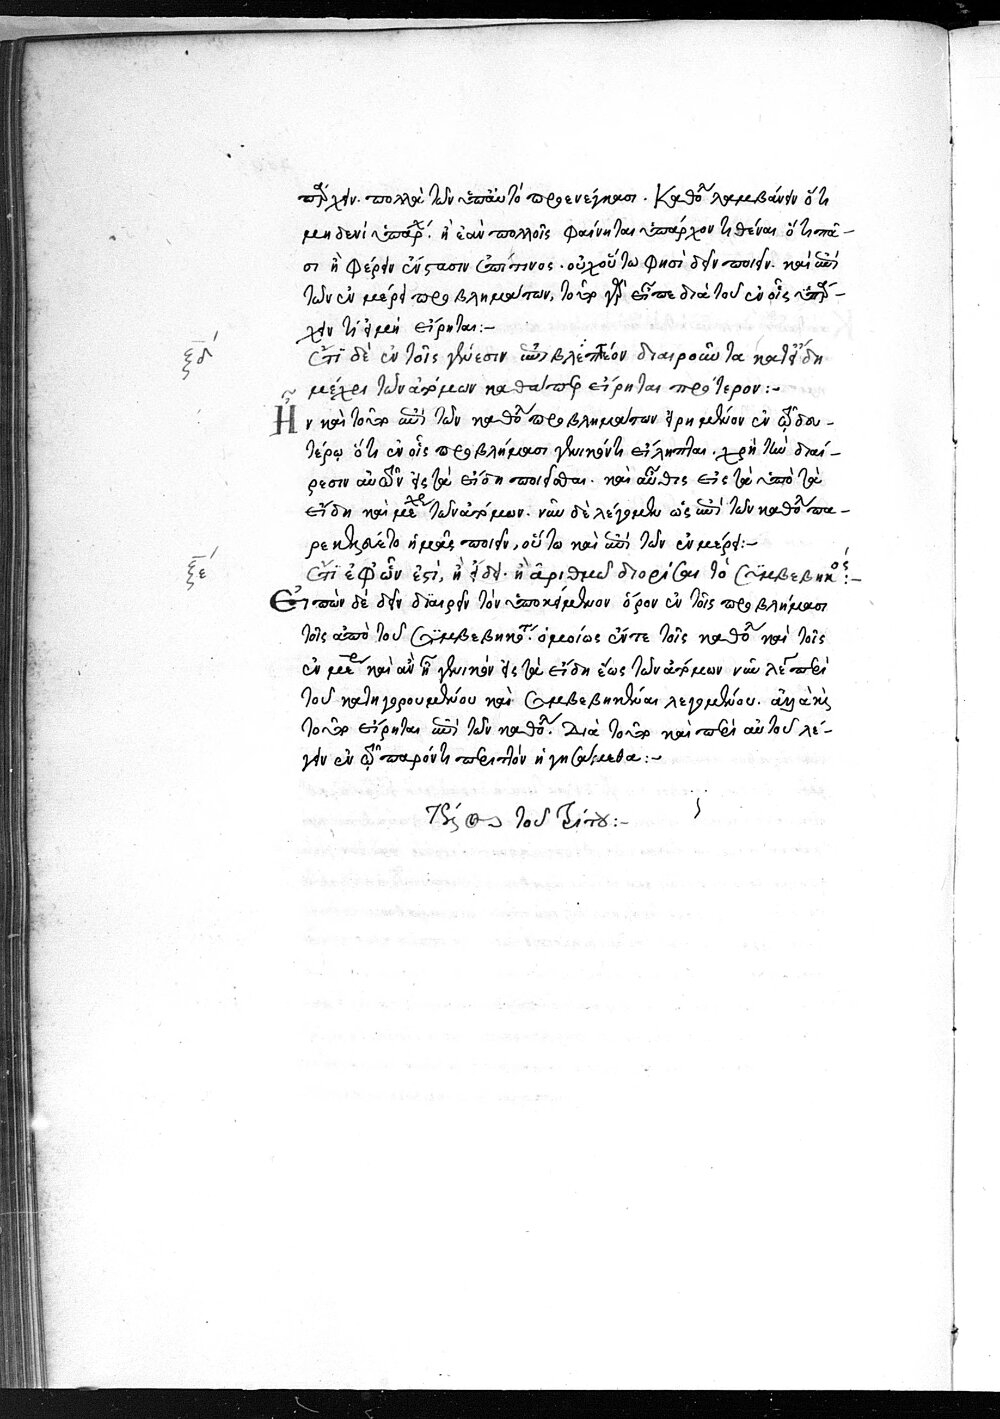 ὑπάρχειν. πολλὰ τῶν ὑπ' αὐτὸ προενέγκασι. καθόλου λαμβάνειν ὅτι
μηδενὶ ὑπάρχει. ἢ ἐὰν πολλοῖς φαίνηται ὑπάρχον τιθέναι ὅτι πᾶ-
σι ἢ φέρειν ἔνστασιν ἐπί τινος. οὐχ οὕτω φησὶ δεῖν ποιεῖν. καὶ ἐπὶ
τῶν ἐν μέρει προβλημάτων, τοῦτο γὰρ εἶπε διὰ τοῦ ἐν οἷς ὑπάρ-
χειν τι ἢ μὴ εἴρηται:~
ξδ΄ Ἔτι δὲ ἐν τοῖς γένεσιν ἐπιβλεπτέον διαιροῦντα κατ' εἴδη
μέχρι τῶν ἀτόμων καθάπερ εἴρηται πρότερον:~
Ἦν καὶ τοῦτο ἐπὶ τῶν καθόλου προβλημάτων εἰρημένον ἐν τῷ δευ-
τέρῳ ὅτι ἐν οἷς προβλήμασι γενικόν τι εἴληπται. χρὴ τὴν διαί-
ρεσιν αὐτῶν εἰς τὰ εἴδη ποιεῖσθαι. καὶ αὖθις εἰς τὰ ὑπὸ τὰ
εἴδη καὶ μέχρι τῶν ἀτόμων. νῦν δὲ λέγομεν ὡς ἐπὶ τῶν καθόλου πα-
ρεκτίθετο ἡμᾶς ποιεῖν, οὕτω καὶ ἐπὶ τῶν ἐν μέρει:~
ξε΄ Ἔτι ἐφ' ὧν ἐστὶ, ἢ εἴδει. ἢ ἀριθμῷ διορίσαι τὸ συμβεβηκός:~
Εἰπὼν δὲ δεῖν διαιρεῖν τὸν ὑποκείμενον ὅρον ἐν τοῖς προβλήμασι
τοῖς ἀπὸ τοῦ συμβεβηκότος. ὁμοίως ἔν τε τοῖς καθόλου καὶ τοῖς
ἐν μέρει καὶ ἂν ᾖ γενικὸν εἰς τὰ εἴδη ἕως τῶν ἀτόμων νῦν λέγει περὶ
τοῦ κατηγορουμένου καὶ συμβεβηκέναι λεγομένου. ἀλλὰ καὶ
τοῦτο εἴρηται ἐπὶ τῶν καθόλου. Διὰ τοῦτο καὶ περὶ αὐτοῦ λέ-
γειν ἐν τῷ παρόντι περιττὸν ἡγησάμεθα:~
Τέλος τοῦ τρίτου:~